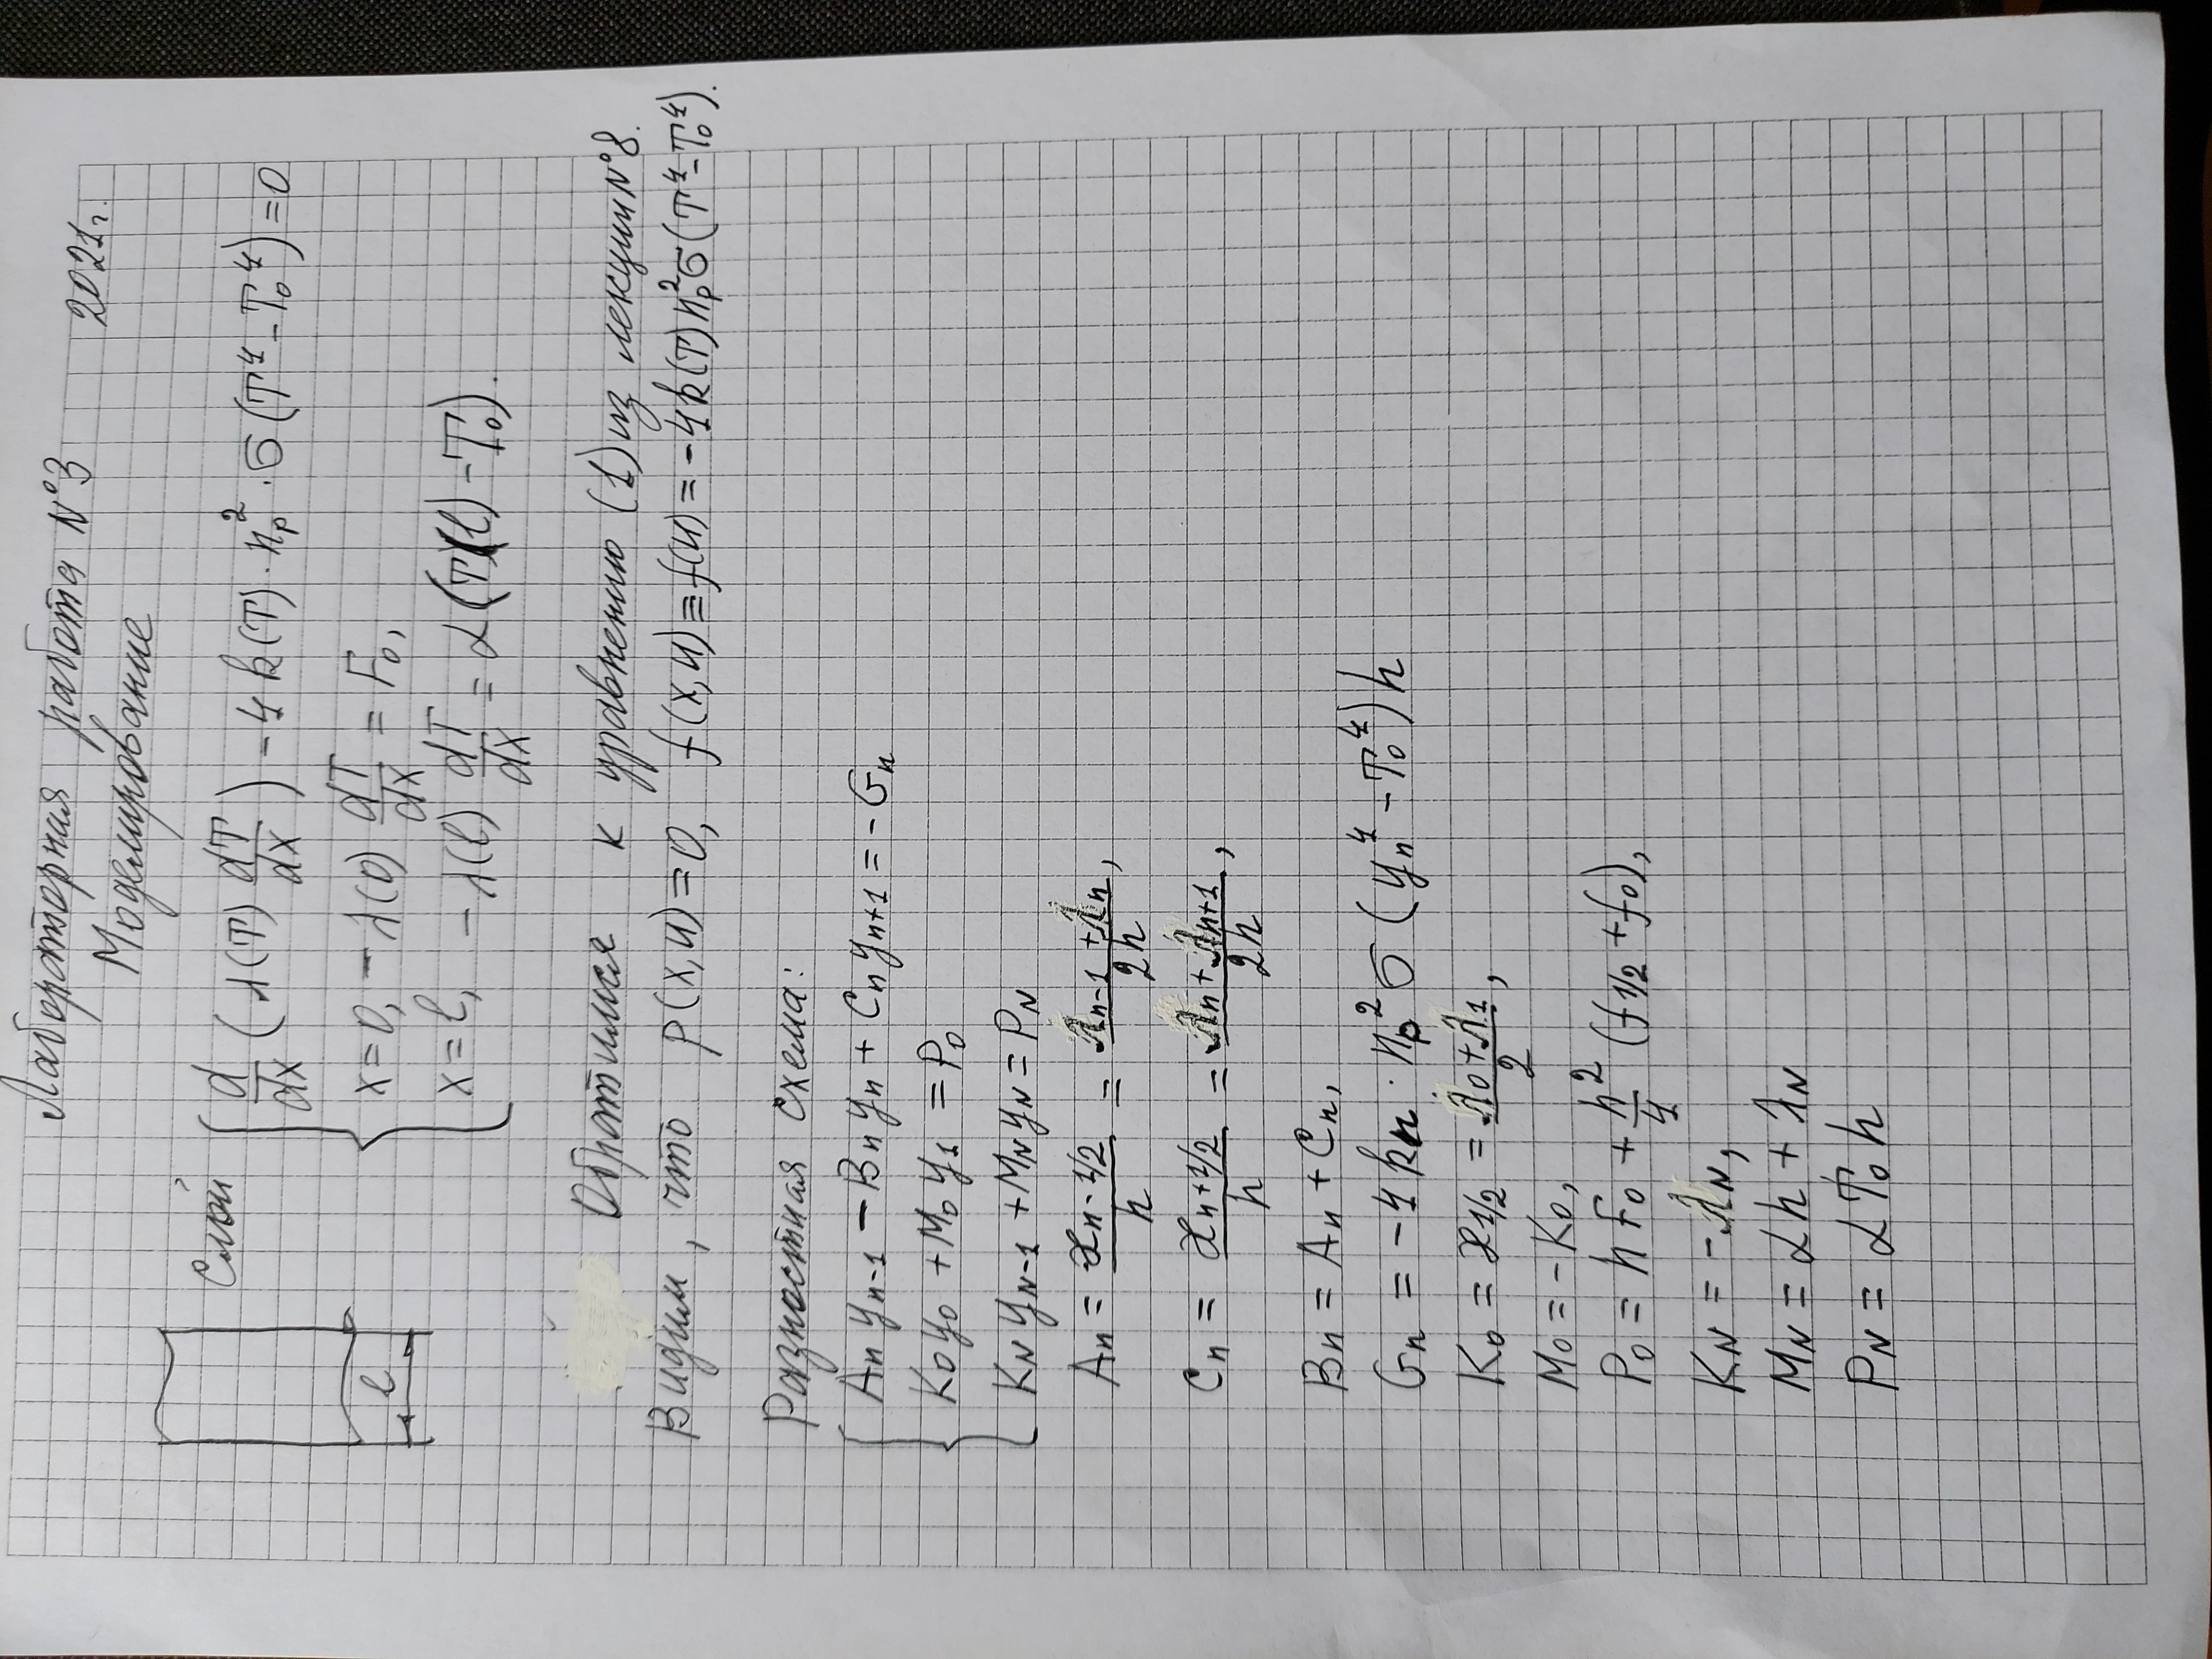 Лабораторная работа №3 2021г.
Моделирование
Слой
d/dx (λ(T) dT/dx) - 4 k(T) · n_p^2 · σ (T^4 - T_0^4) = 0
x=0, -λ(0) dT/dx = F_0,
x=l, -λ(l) dT/dx = α (T(l) - T_0).
l
Обратимся к уравнению (1) из лекции №8.
Видим, что p(x,u)=0, f(x,u) ≡ f(u) = -4k(T) n_p^2 σ (T^4 - T_0^4).
Разностная схема:
A_n y_{n-1} - B_n y_n + C_n y_{n+1} = -G_n
K_0 y_0 + M_0 y_1 = P_0
K_N y_{N-1} + M_N y_N = P_N
A_n = ϰ_{n-1/2}/h = (λ_{n-1} + λ_n)/2h,
C_n = ϰ_{n+1/2}/h = (λ_n + λ_{n+1})/2h,
B_n = A_n + C_n,
G_n = -4 k_n · n_p^2 σ (y_n^4 - T_0^4) h
K_0 = ϰ_{1/2} = (λ_0 + λ_1)/2,
M_0 = -K_0,
P_0 = h F_0 + h^2/4 (f_{1/2} + f_0),
K_N = -λ_N,
M_N = αh + λ_N
P_N = α T_0 h